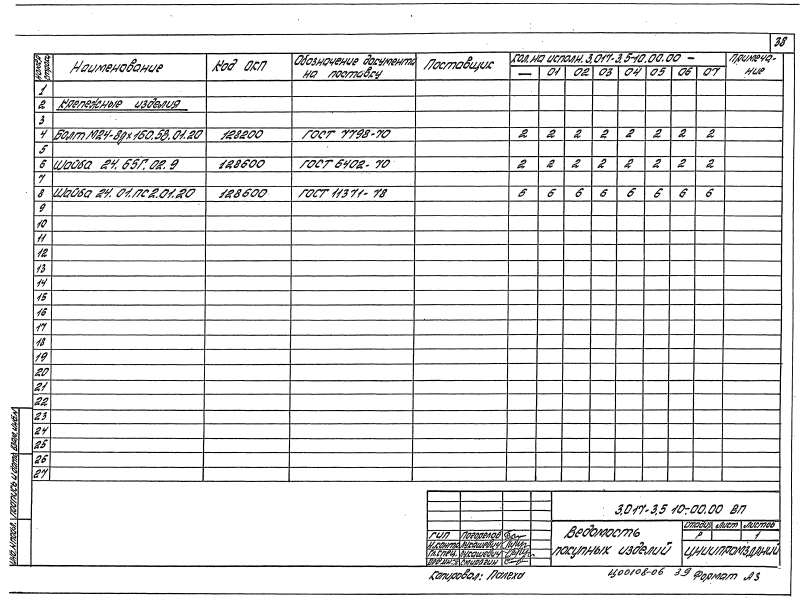 38
Номер строки
Наименование
Код ОКП
Обозначение документа на поставку
Поставщик
Кол. на исполн. 3.017-3.5-10.00.00 —
— 01 02 03 04 05 06 07
Примеча-
ние
1
2 Крепежные изделия
3
4 Болт М24-8gх160.58.01.20 128200 ГОСТ 7798-70 2 2 2 2 2 2 2 2
5
6 Шайба 24.65Г.02.9 128600 ГОСТ 6402-70 2 2 2 2 2 2 2 2
7
8 Шайба 24.01.ПС2.01.20 128600 ГОСТ 11371-78 6 6 6 6 6 6 6 6
9
10
11
12
13
14
15
16
17
18
19
20
21
22
23
24
25
26
27
Инв.№ подл. Подпись и дата Взам.инв.№
3.017-3.5 10-00.00 ВП
ГИП Погорелов
Н.контр. Лукашевич
Гл.спец. Лукашевич
Спирягин
Ведомость
покупных изделий
Стадия Лист Листов
Р 1
ЦНИИПРОМЗДАНИЙ
Копировал: Палеха
Ц00108-06 39 Формат А3